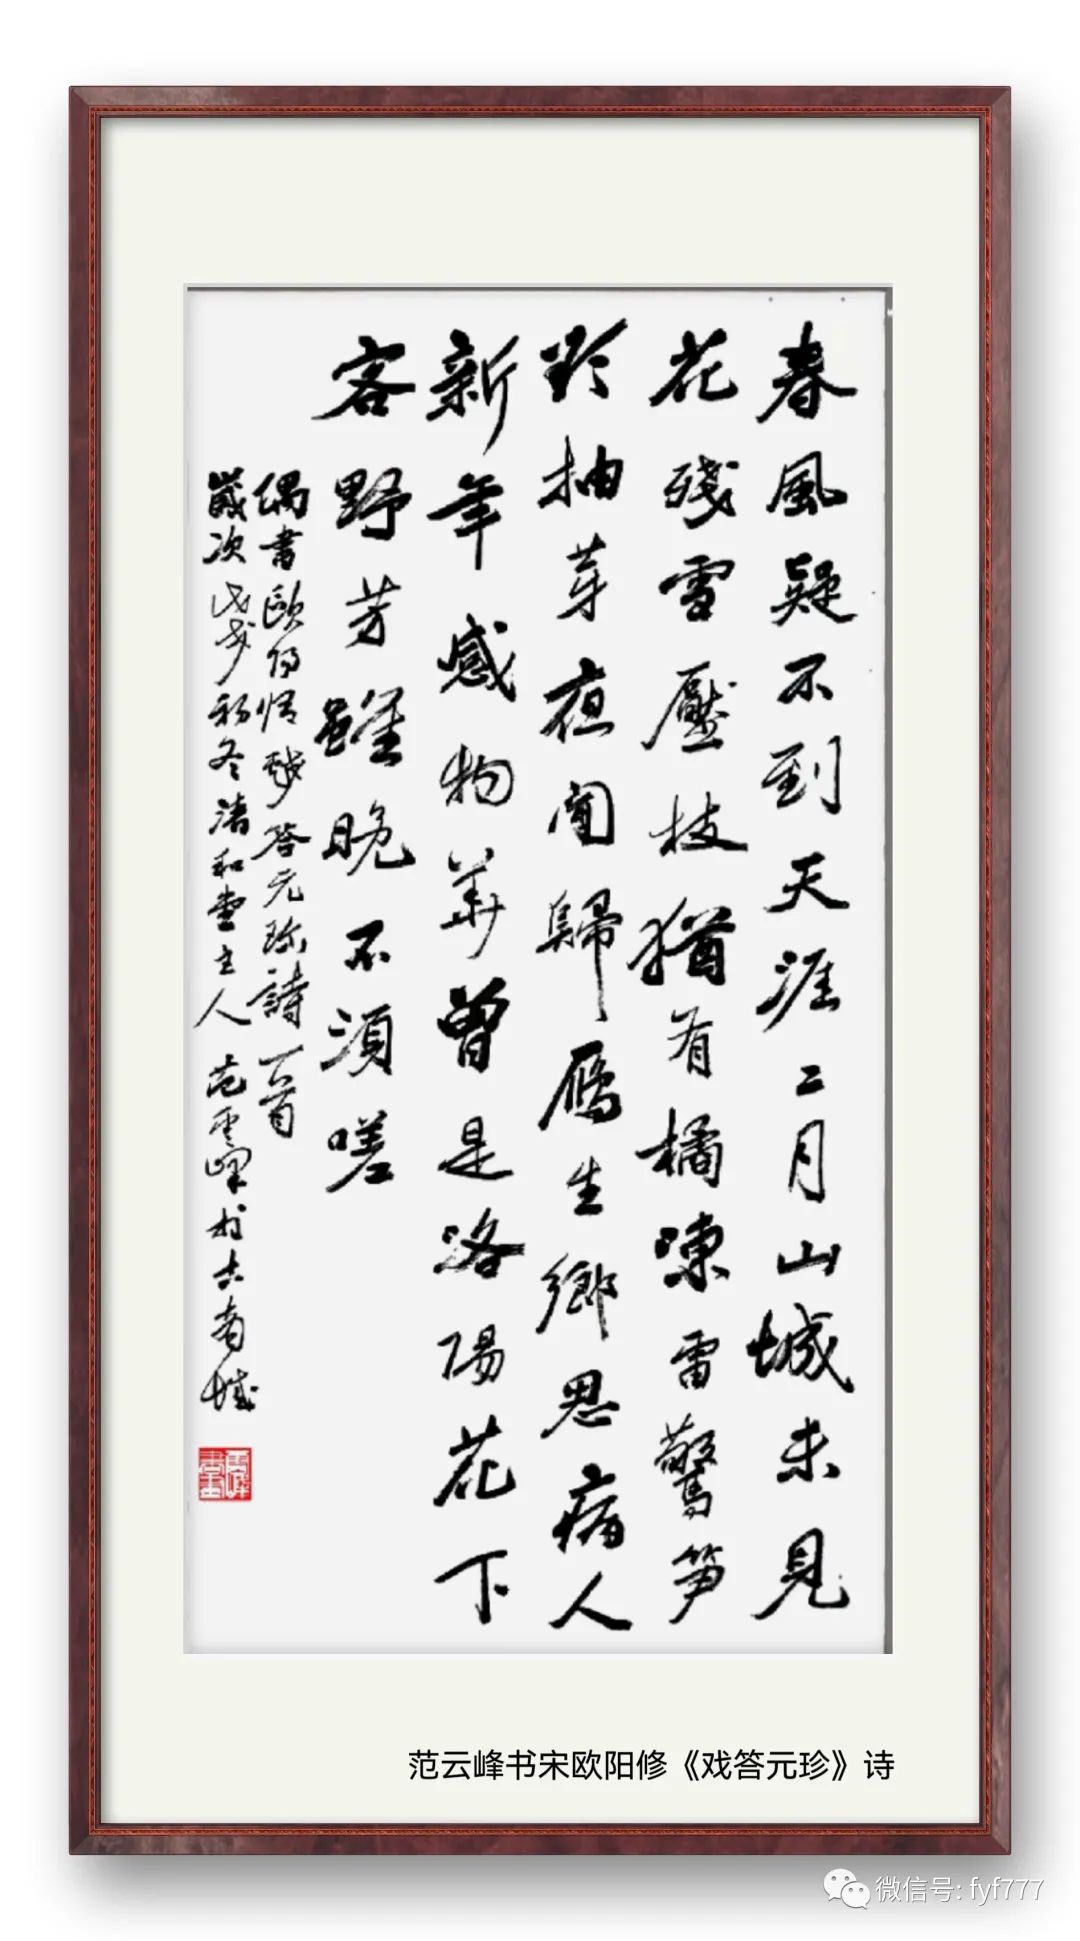 春風疑不到天涯二月山城未見
花殘雪壓枝猶有橘凍雷驚笋
欲抽芽夜聞歸雁生鄉思病人
新年感物華曾是洛陽花下
客野芳雖晚不須嗟
偶書歐陽脩戲答元珍詩一首
歲次戊戌初冬清和堂主人范雲峰於古南城
范云峰书宋欧阳修《戏答元珍》诗
微信号: fyf777